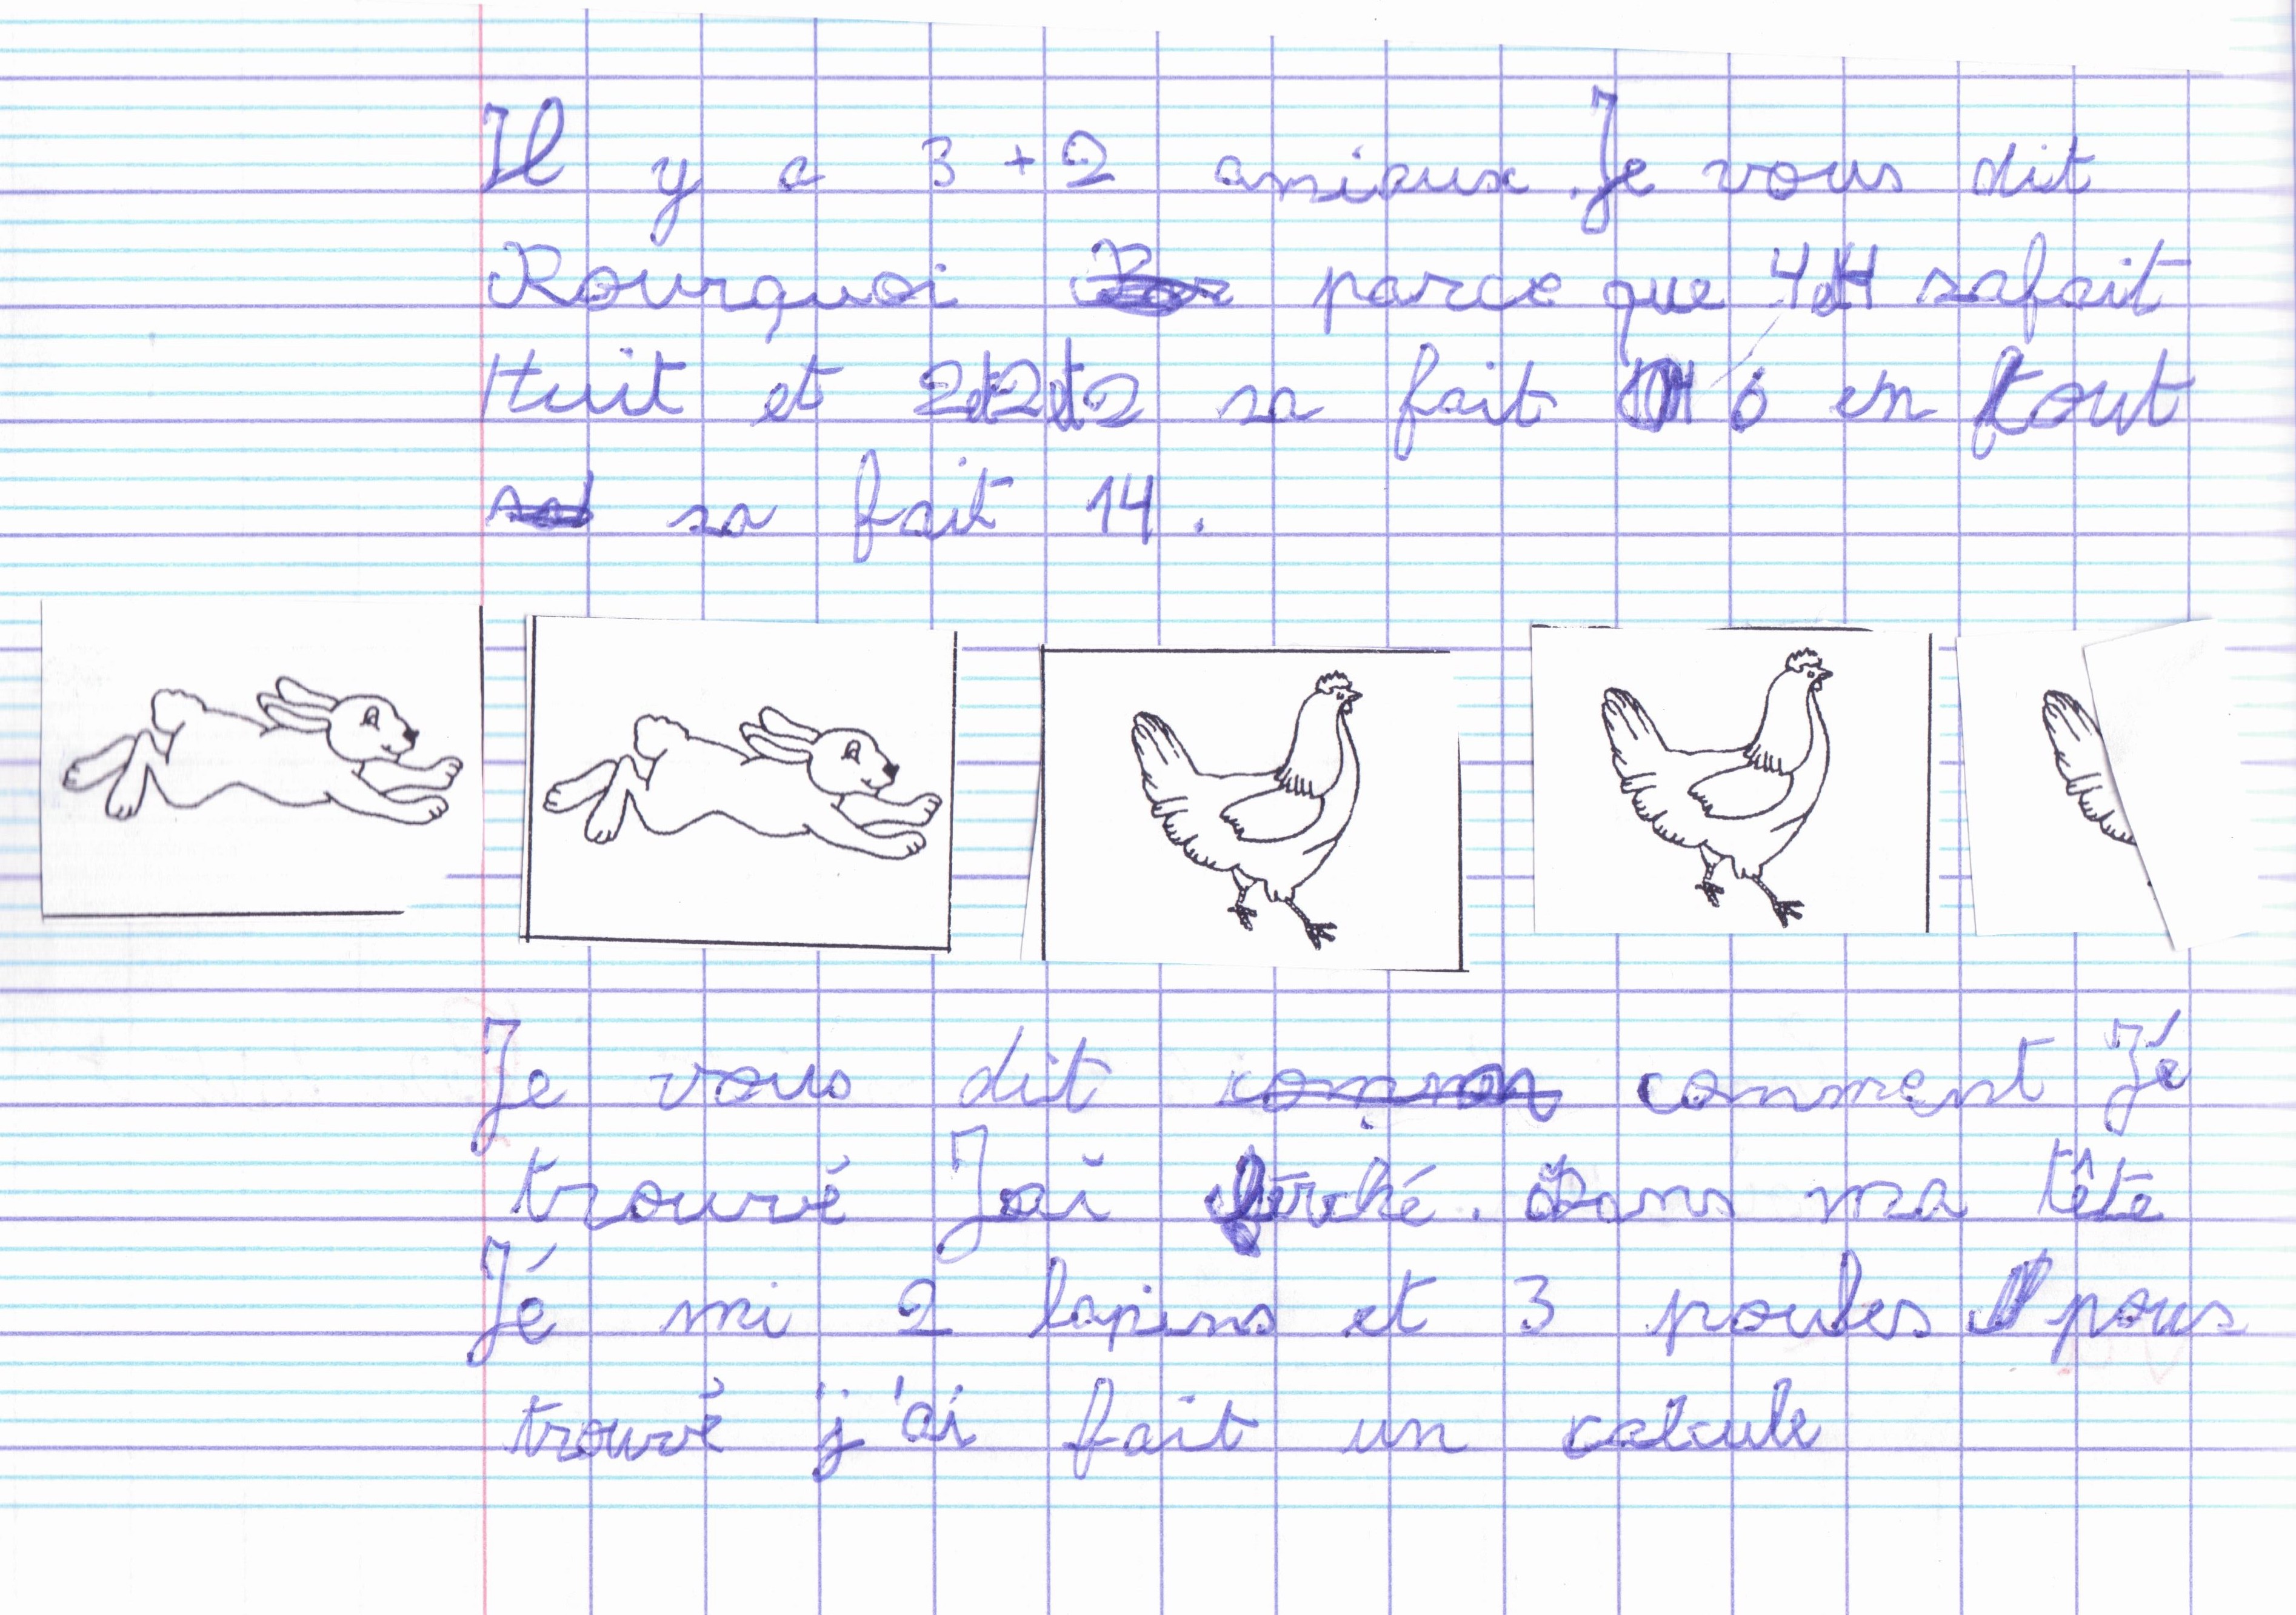 Il y a 3 + 2 amiaux. Je vous dit
Pourquoi parce que 4et4 safait
Huit et 2et2et2 sa fait 6 en tout
sa fait 14.
Je vous dit comment Jé
trouvé Jai cherché. Dans ma tête
Jé mi 2 lapins et 3 poules pour
trouvé j'ai fait un calcule